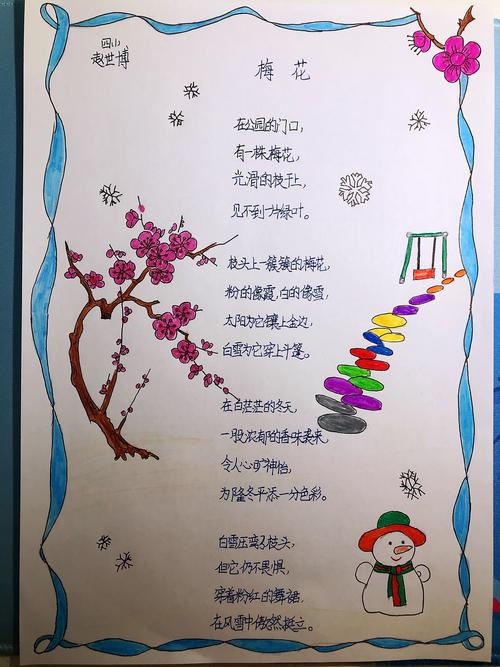 四小
赵世博
梅花
在公园的门口，
有一株梅花，
光滑的枝干上，
见不到一片绿叶。
枝头上一簇簇的梅花，
粉的像霞，白的像雪，
太阳为它镶上金边，
白雪为它穿上斗篷。
在白茫茫的冬天，
一股浓郁的香味袭来，
令人心旷神怡，
为隆冬平添一分色彩。
白雪压弯了枝头，
但它仍不畏惧，
穿着粉红的舞裙，
在风雪中傲然挺立。